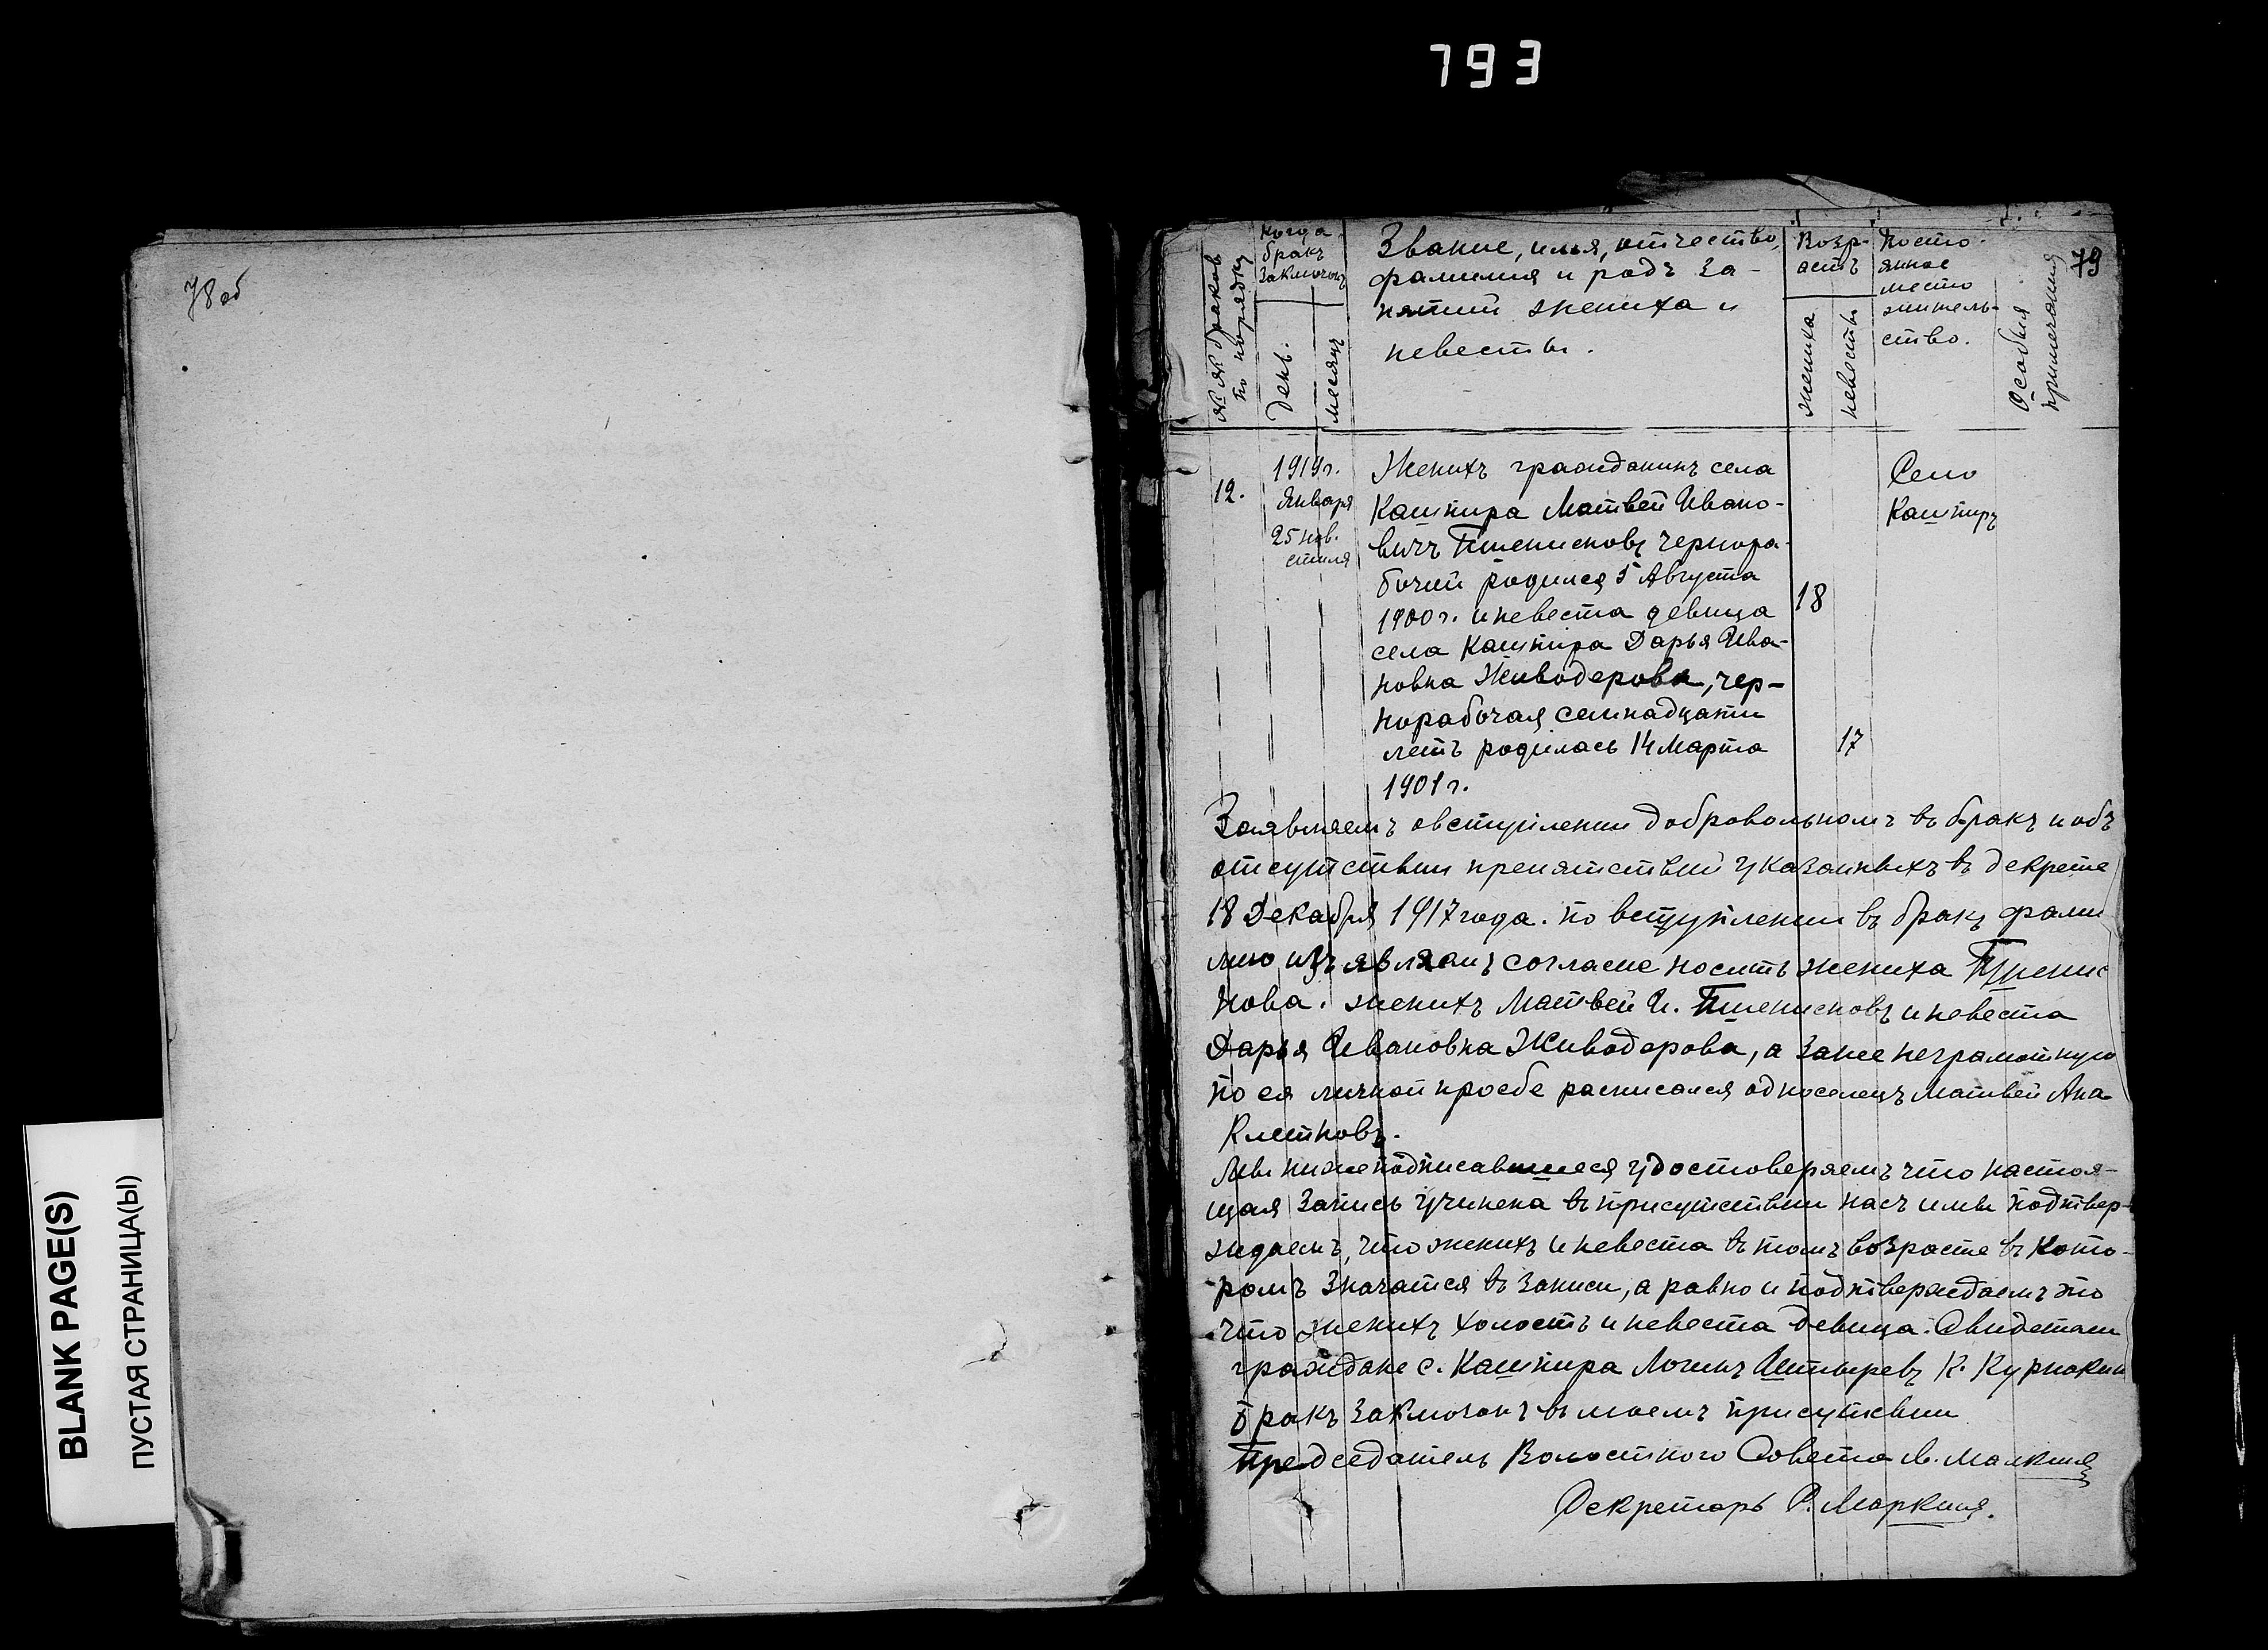 793
78 об
BLANK PAGE(S)
ПУСТАЯ СТРАНИЦА(Ы)
79
№ № браковъ по порядку
Когда
бракъ
заключонъ
День.
месяцъ
Звание, имя, отчество,
фамилия и родъ за-
нятий жениха и
невесты.
Возр-
астъ
жениха
невесты
Посто-
янное
место
житель-
ство.
Особыя
примечания
12.
1919 г.
Января
25 нов.
стиля
Женихъ гражданинъ села
Кашпира Матвей Ивано-
вичъ Пшенисновъ чернора-
бочий родился 5 Августа
1900 г. и невеста девица
села Кашпира Дарья Ива-
новна Живодерова, чер-
норабочая семнадцати
летъ родилась 14 Марта
1901 г.
18
17
Село
Кашпиръ
Заявляемъ о вступлении добровольномъ въ бракъ и объ
отсутствии препятствий указанныхъ въ декрете
18 Декабря 1917 года. по вступлении въ бракъ фами
лию изъявляемъ согласие носить жениха Пшенис
нова. женихъ Матвей И. Пшенисновъ и невеста
Дарья Ивановна Живодерова, а за нее неграмотную
по ея личной прозбе расписался односелецъ Матвей Ана
Клетновъ.
Мы нижеподписавшиеся удостоверяемъ что настоя-
щая запись учинена въ присутствии насъ и мы подтвер-
ждаемъ, что женихъ и невеста въ томъ возрасте въ кото-
ромъ значатся въ записи, а равно и подтверждаемъ это
что женихъ холостъ и невеста девица. Свидетели
граждане с. Кашпира Логинъ К.
бракъ заключонъ въ моемъ присутсвии
Председатель Волостного Совета
Секретарь